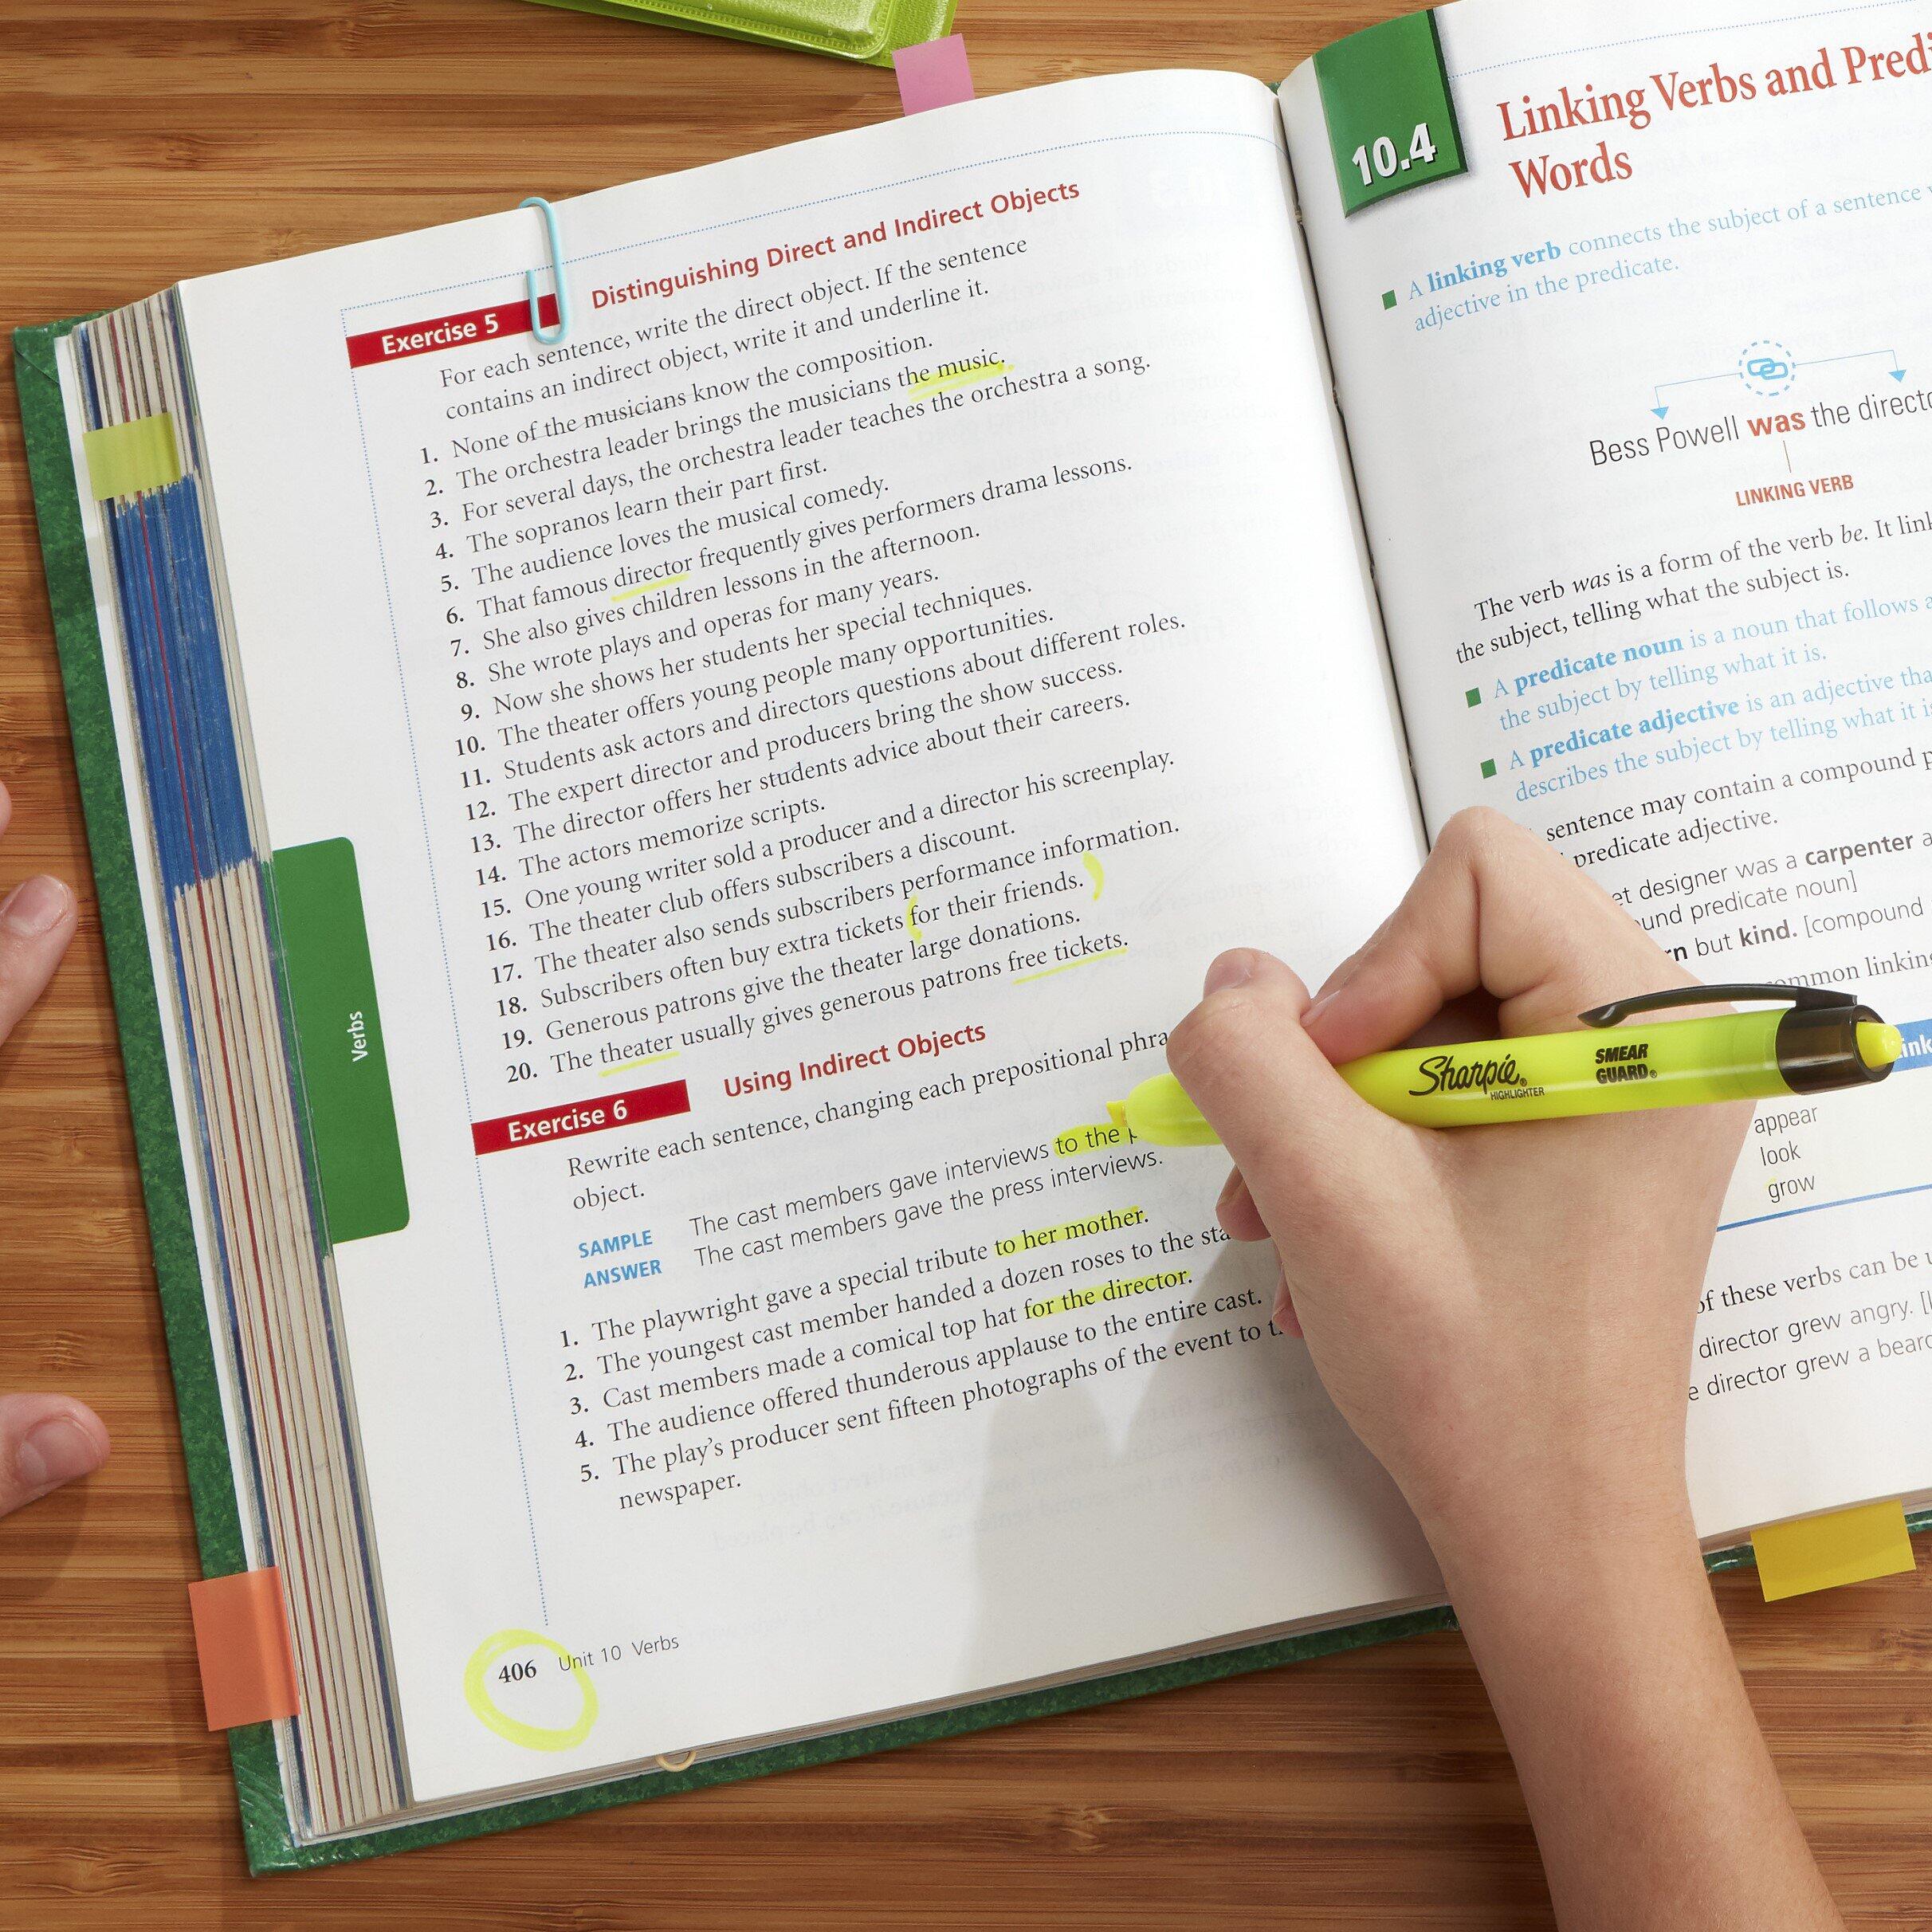 Exercise 5 Distinguishing Direct and Indirect Objects
For each sentence, write the direct object. If the sentence
contains an indirect object, write it and underline it.
1. None of the musicians know the composition.
2. The orchestra leader brings the musicians the music.
3. For several days, the orchestra leader teaches the orchestra a song.
4. The sopranos learn their part first.
5. The audience loves the musical comedy.
6. That famous director frequently gives performers drama lessons.
7. She also gives children lessons in the afternoon.
8. She wrote plays and operas for many years.
9. Now she shows her students her special techniques.
10. The theater offers young people many opportunities.
11. Students ask actors and directors questions about different roles.
12. The expert director and producers bring the show success.
13. The director offers her students advice about their careers.
14. The actors memorize scripts.
15. One young writer sold a producer and a director his screenplay.
16. The theater club offers subscribers a discount.
17. The theater also sends subscribers performance information.
18. Subscribers often buy extra tickets for their friends.
19. Generous patrons give the theater large donations.
20. The theater usually gives generous patrons free tickets.
Exercise 6 Using Indirect Objects
Rewrite each sentence, changing each prepositional
object.
SAMPLE The cast members gave interviews to the
ANSWER The cast members gave the press interviews.
1. The playwright gave a special tribute to her mother.
2. The youngest cast member handed a dozen roses to the
3. Cast members made a comical top hat for the director.
4. The audience offered thunderous applause to the entire cast.
5. The play's producer sent fifteen photographs of the event to
newspaper.
406 Unit 10 Verbs
Verbs
10.4
Linking Verbs and
Words
A linking verb connects the subject of a sentence
adjective in the predicate.
Bess Powell was the
LINKING VERB
The verb was is a form of the verb be. It
the subject, telling what the subject is.
A predicate noun is a noun that follows a
the subject by telling what it is.
A predicate adjective is an adjective
describes the subject by telling what it
sentence may contain a compound
predicate adjective.
designer was a carpenter
predicate noun]
but kind. [compound
linking
appear
look
grow
of these verbs can be
director grew angry.
director grew a beard
Sharpie
HIGHLIGHTER
SMEAR
GUARD